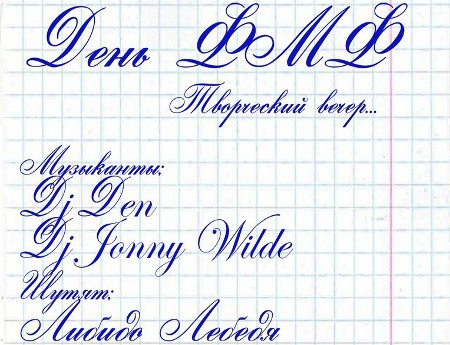 День ФМФ
Творческий вечер...
Музыканты:
Dj Den
Dj Jonny Wilde
Шутят:
Либидо Лебедя